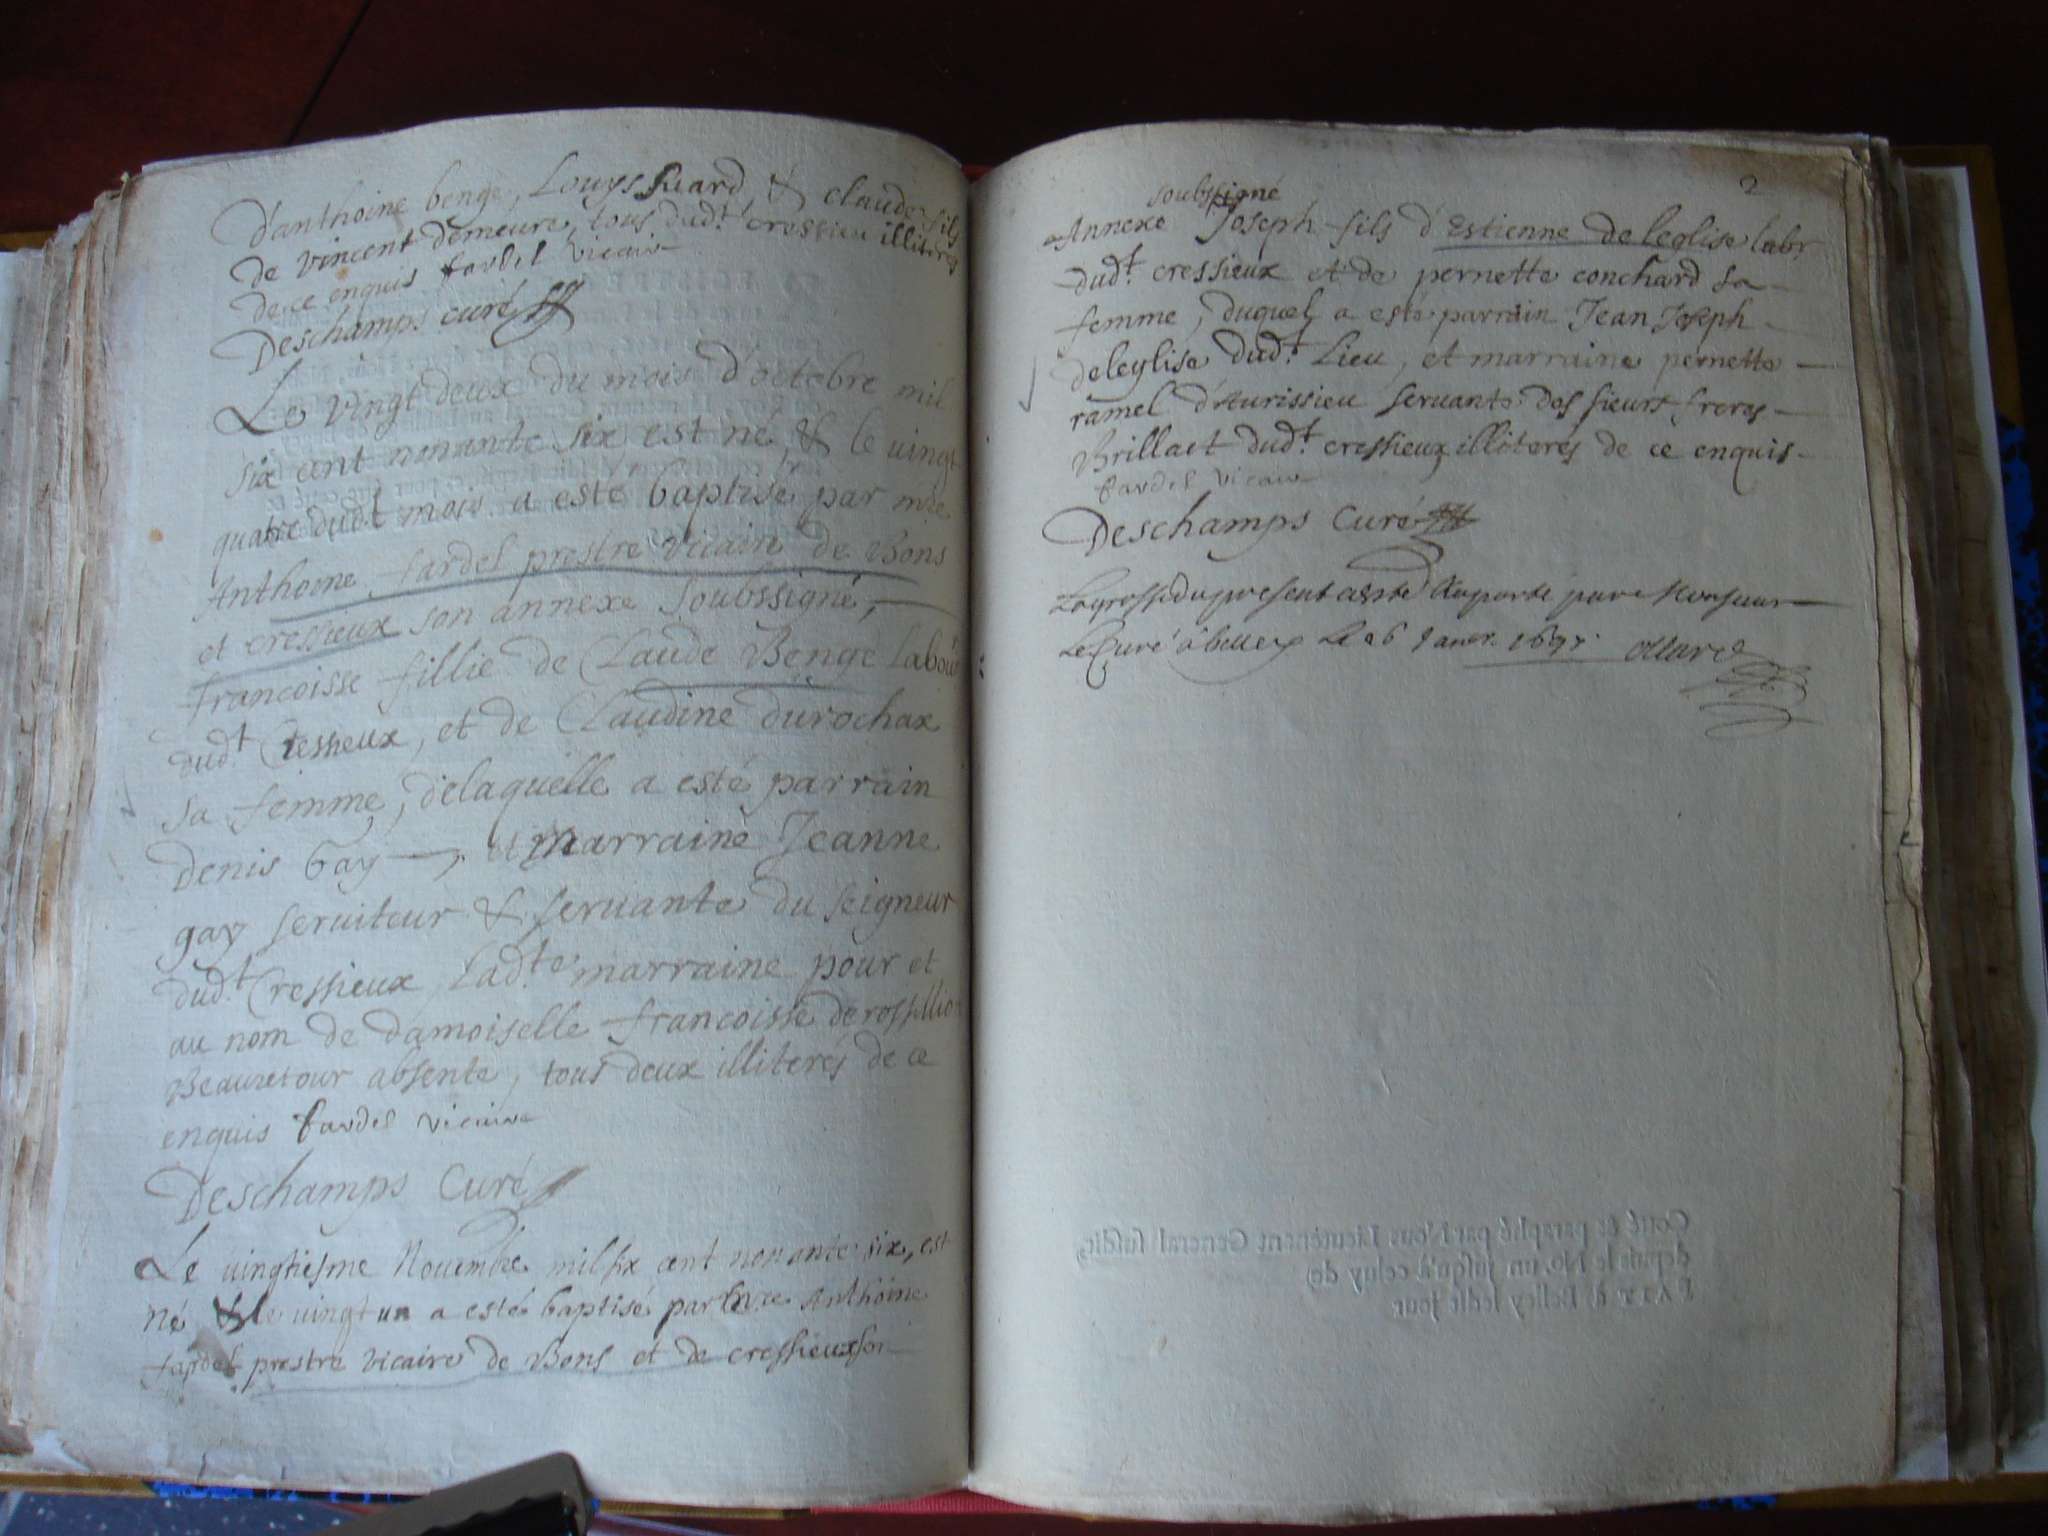 d'anthoine benge, Louys suard & claude fils
de vincent demeure, tous dud.t cressieu illiteres
de ce enquis fardel vicaire
Deschamps curé
Le vingt deux du mois d'octobre mil
six cent nonante six est né, & le vingt
quatre dud.t mois a esté baptisé par mre
Anthoine fardel prestre vicaire de Bons
et cressieux son annexe soubssigné,
francoisse fillie de Claude Benge labour
dud.t Cressieux, et de Claudine durochax
sa femme, delaquelle a esté parrain
denis Gay, et marraine Jeanne
gay seruiteur & seruante du seigneur
dud.t Cressieux, Lad.te marraine pour et
au nom de damoiselle francoisse de rossillion
Beauretour absente, tous deux illiterés de ce
enquis fardel vicaire
Deschamps Curé
Le uingtiesme Nouembre mil six cent nonante six, est
né & le uingt un a esté baptisé par mre Anthoine
fardel prestre vicaire de Bons et de cressieux son
2
soubssigné
Annexe Joseph fils d'Estienne de leglise labr
dud.t cressieux et de pernette conchard sa
femme, duquel a esté parrain Jean Joseph
deleglise dud.t Lieu, et marraine pernette
ramel d'Aurissieu seruante des sieurs freres
Brillact dud.t cressieux illiterés de ce enquis
fardel vicaire
Deschamps Curé
La grosse du present a esté Raporté par Monsieur
Le Curé a belley Le 26 Janer. 1697.
Cotté & paraphé par Nous Lieutenent General susdit,
depuis le No. un jusqu'à celuy de
FAIT à Belley ledit jour